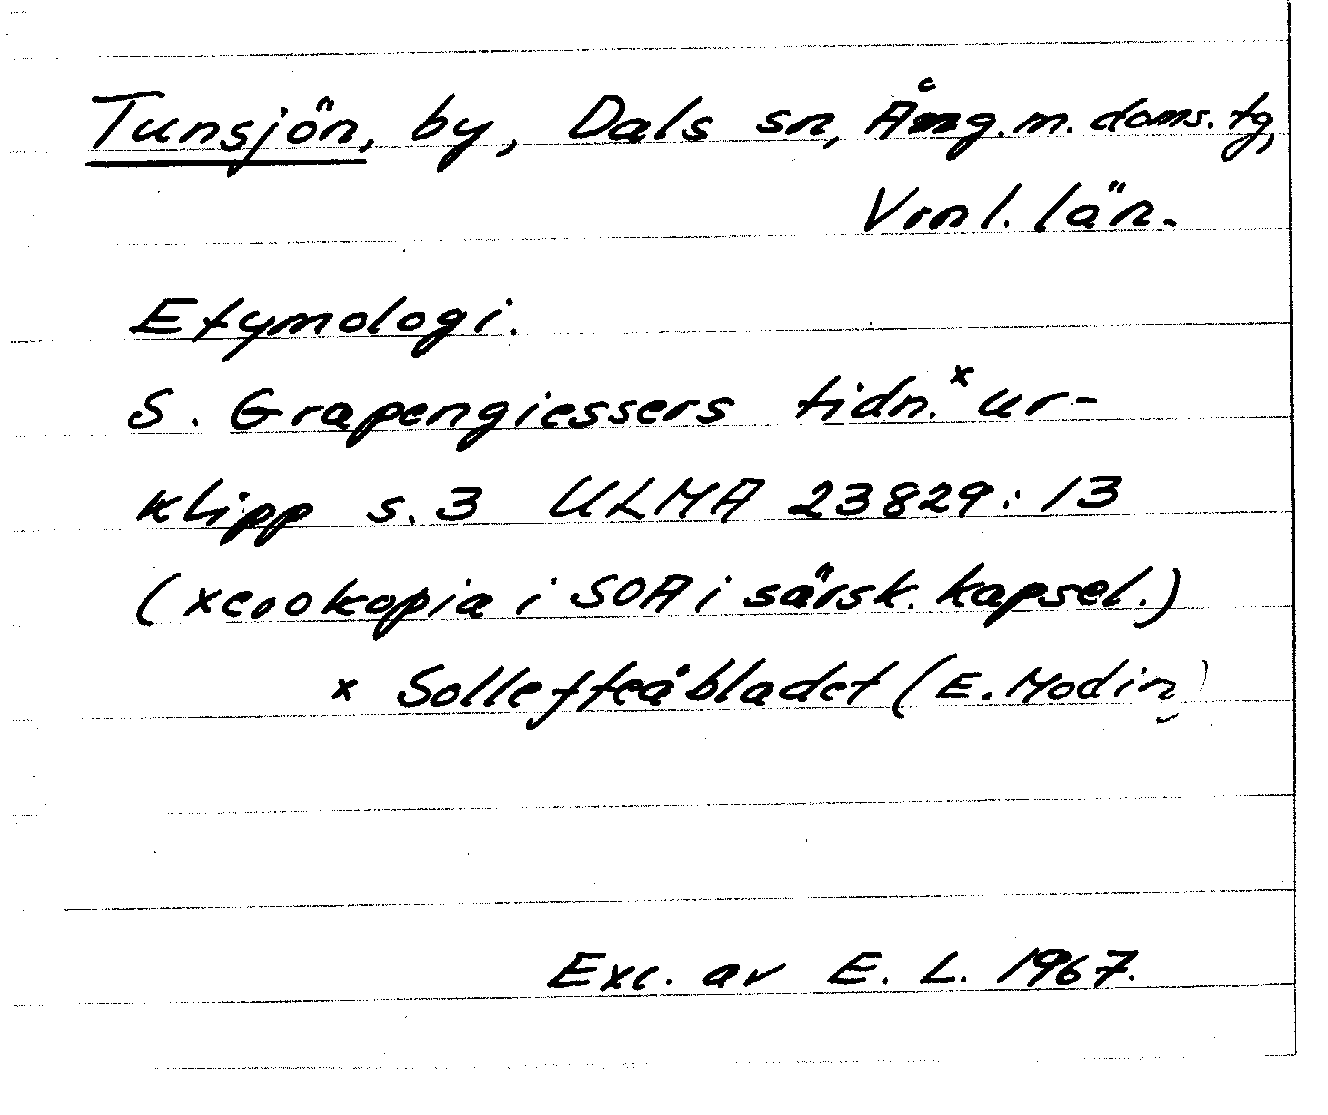 Tunsjön, by, Dals sn, Ång.m. doms. tg,
Vnl. län.
Etymologi.
S. Grapengiessers tidn.ˣ ur-
klipp s. 3 ULMA 23829:13
(xerokopia i SOA i särsk. kapsel.)
x Sollefteåbladet (E. Modin)
Exc. av E. L. 1967.